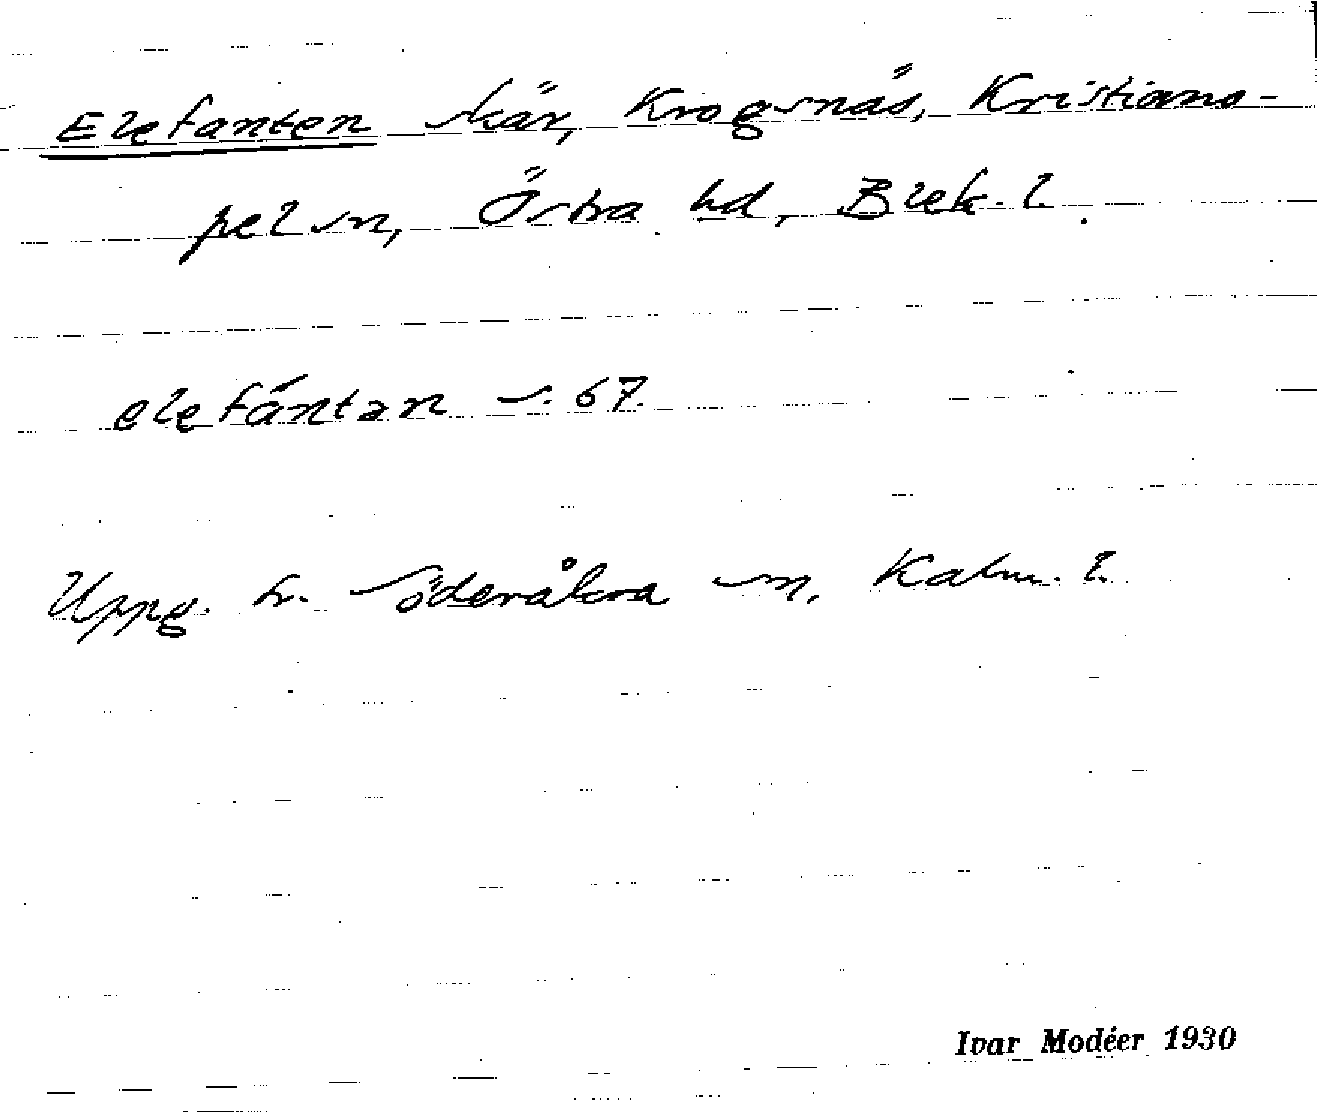 Elefanten skär, Krogsnäs, Kristiano-
pel sn, Östra hd, Blek. l.
elefántan s. 67.
Uppg. fr. Söderåkra sn, Kalm. l.
Ivar Modéer 1930